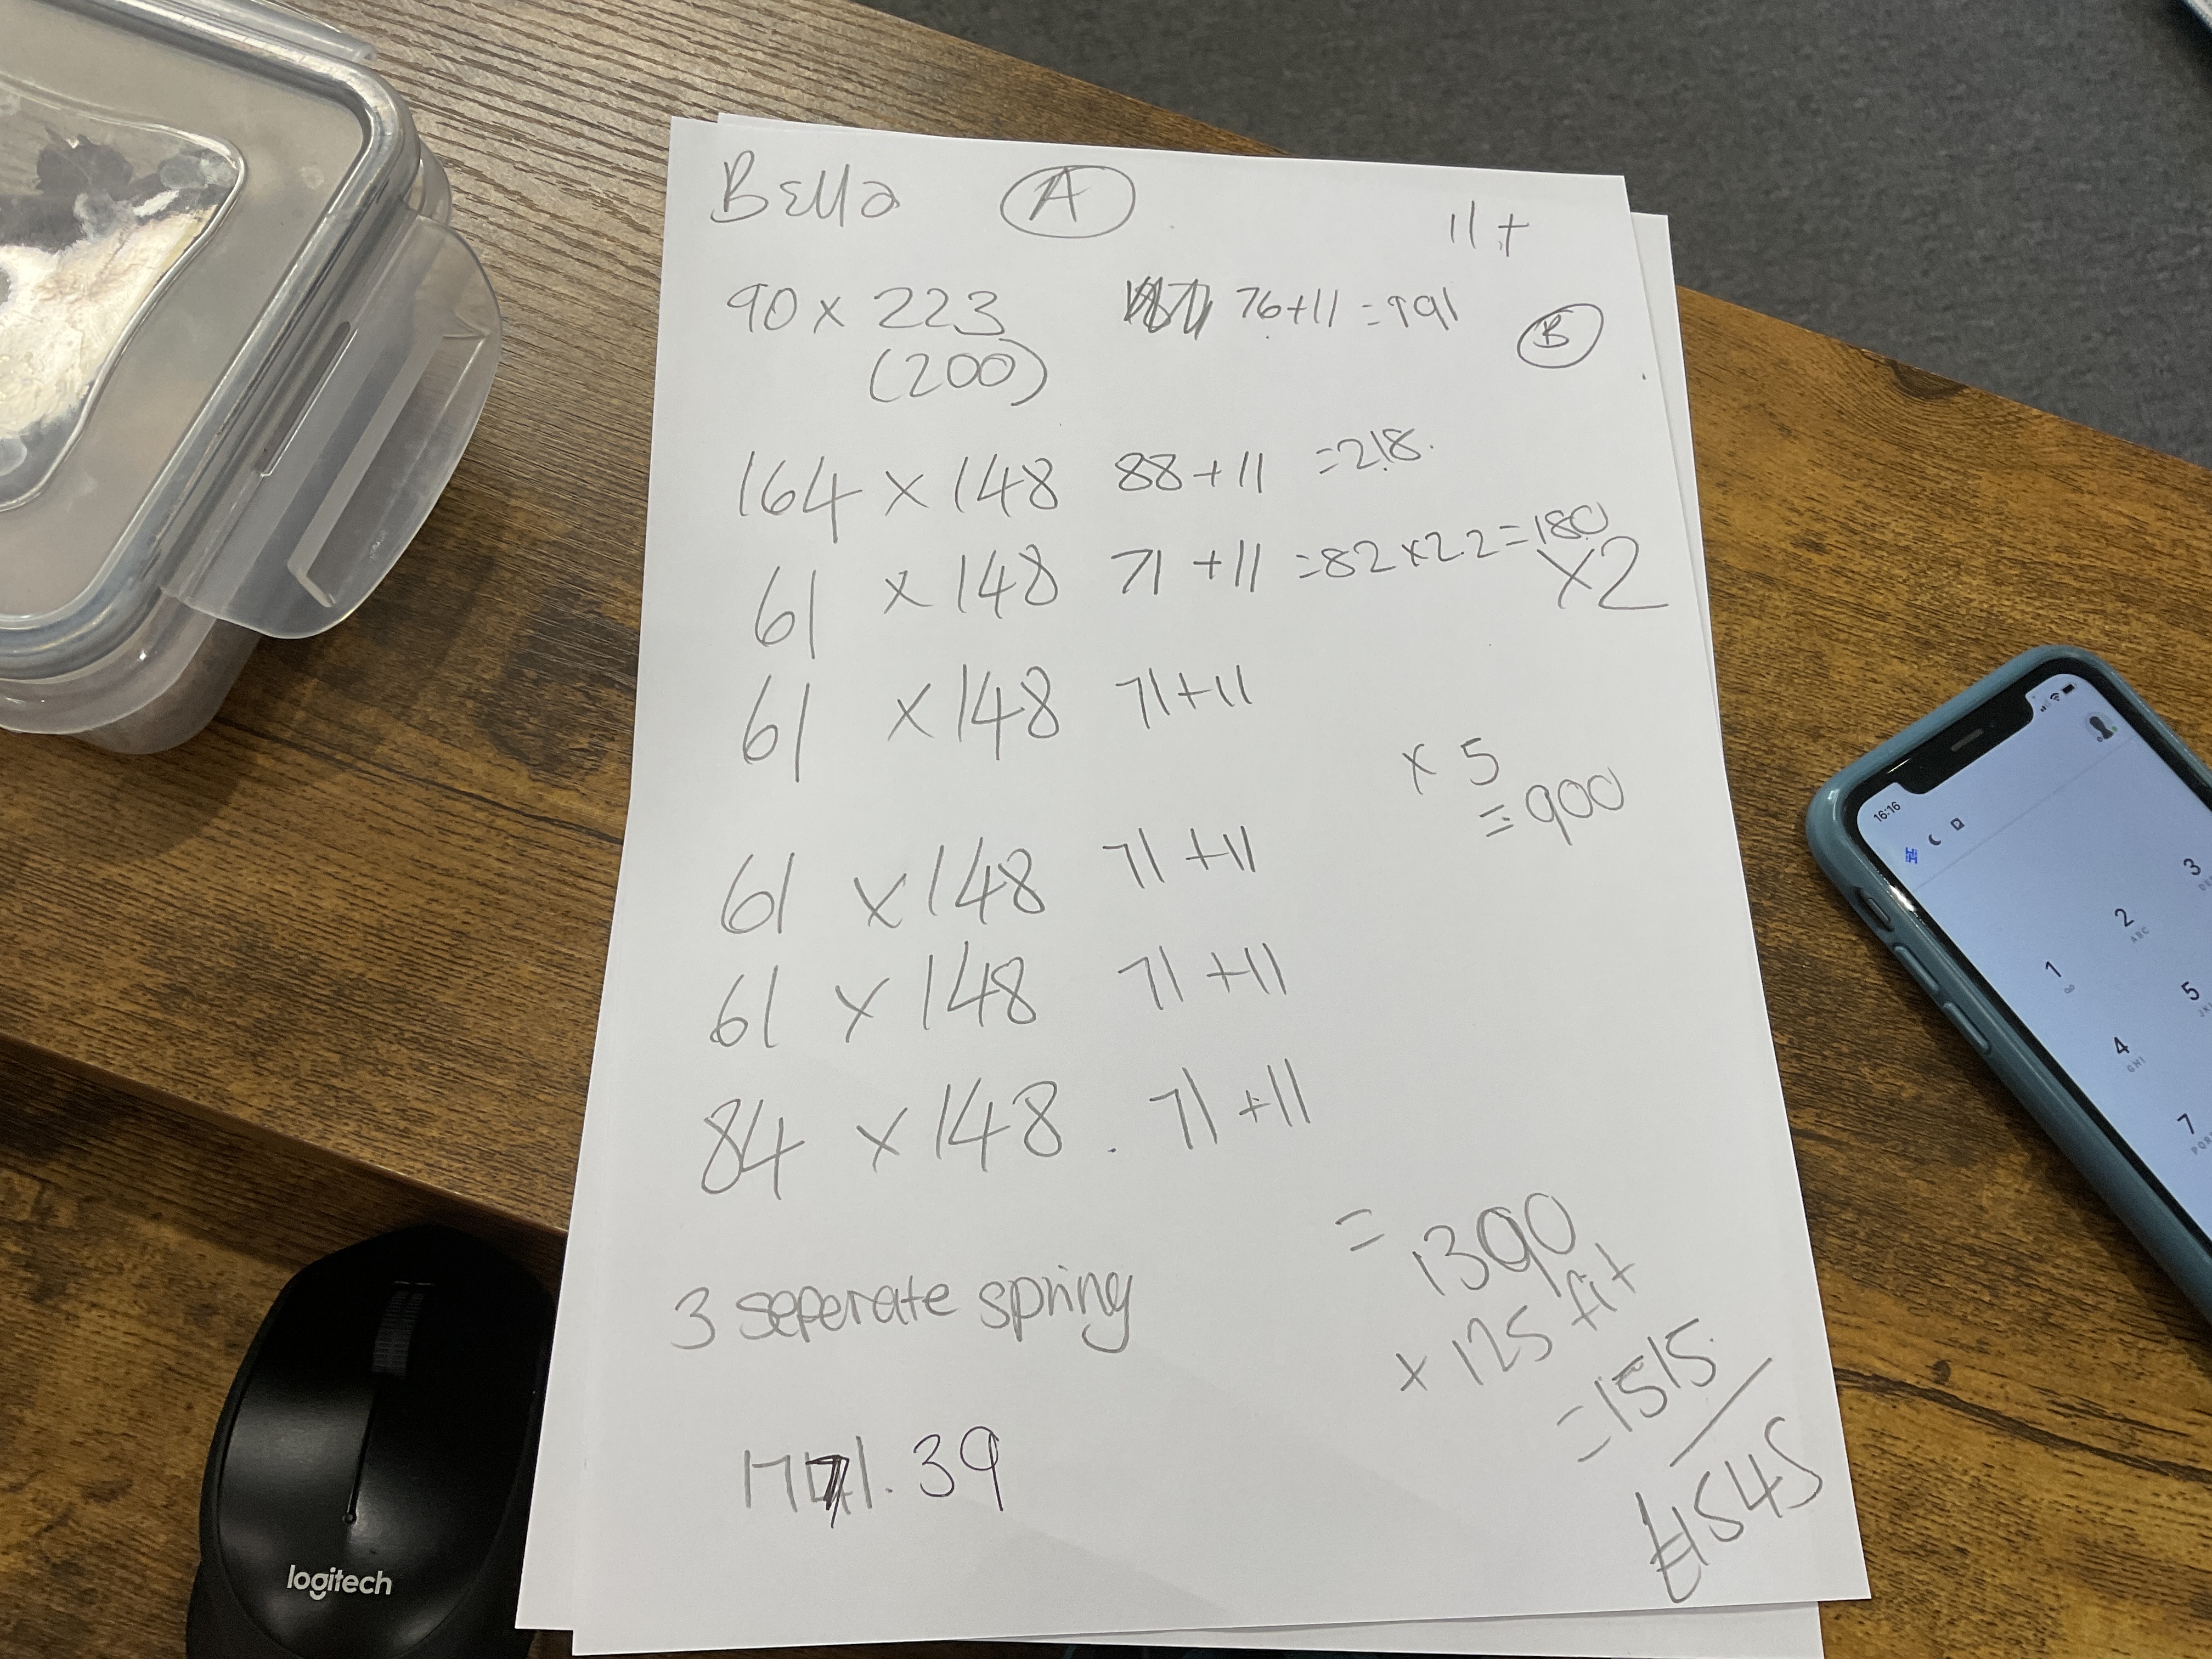 Bella A 11+
90 x 223 76+11 =191
(200) B
164 x 148 88+11 =218.
61 x 148 71+11 =82 x2.2 =180
x2
61 x 148 71+11
x 5
= 900
61 x 148 71+11
61 x 148 71+11
84 x 148 . 71+11
= 1390
3 seperate spring
x 125 fit
= 1515
.39
£1545
logitech
16:16
1
2
ABC
3
4
GHI
5
7